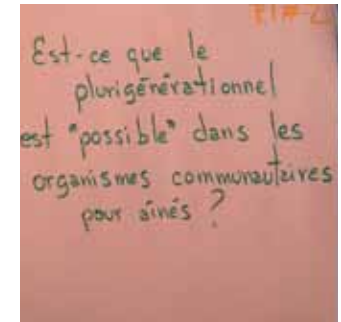 Est-ce que le
plurigénérationnel
est "possible" dans les
organismes communautaires
pour aînés ?